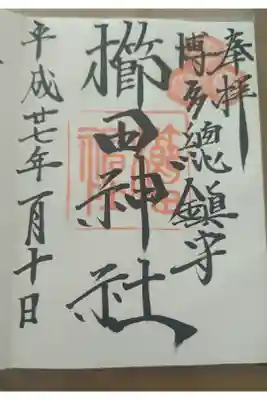 奉拝
博多總鎮守
櫛田神社
平成廿七年一月十日